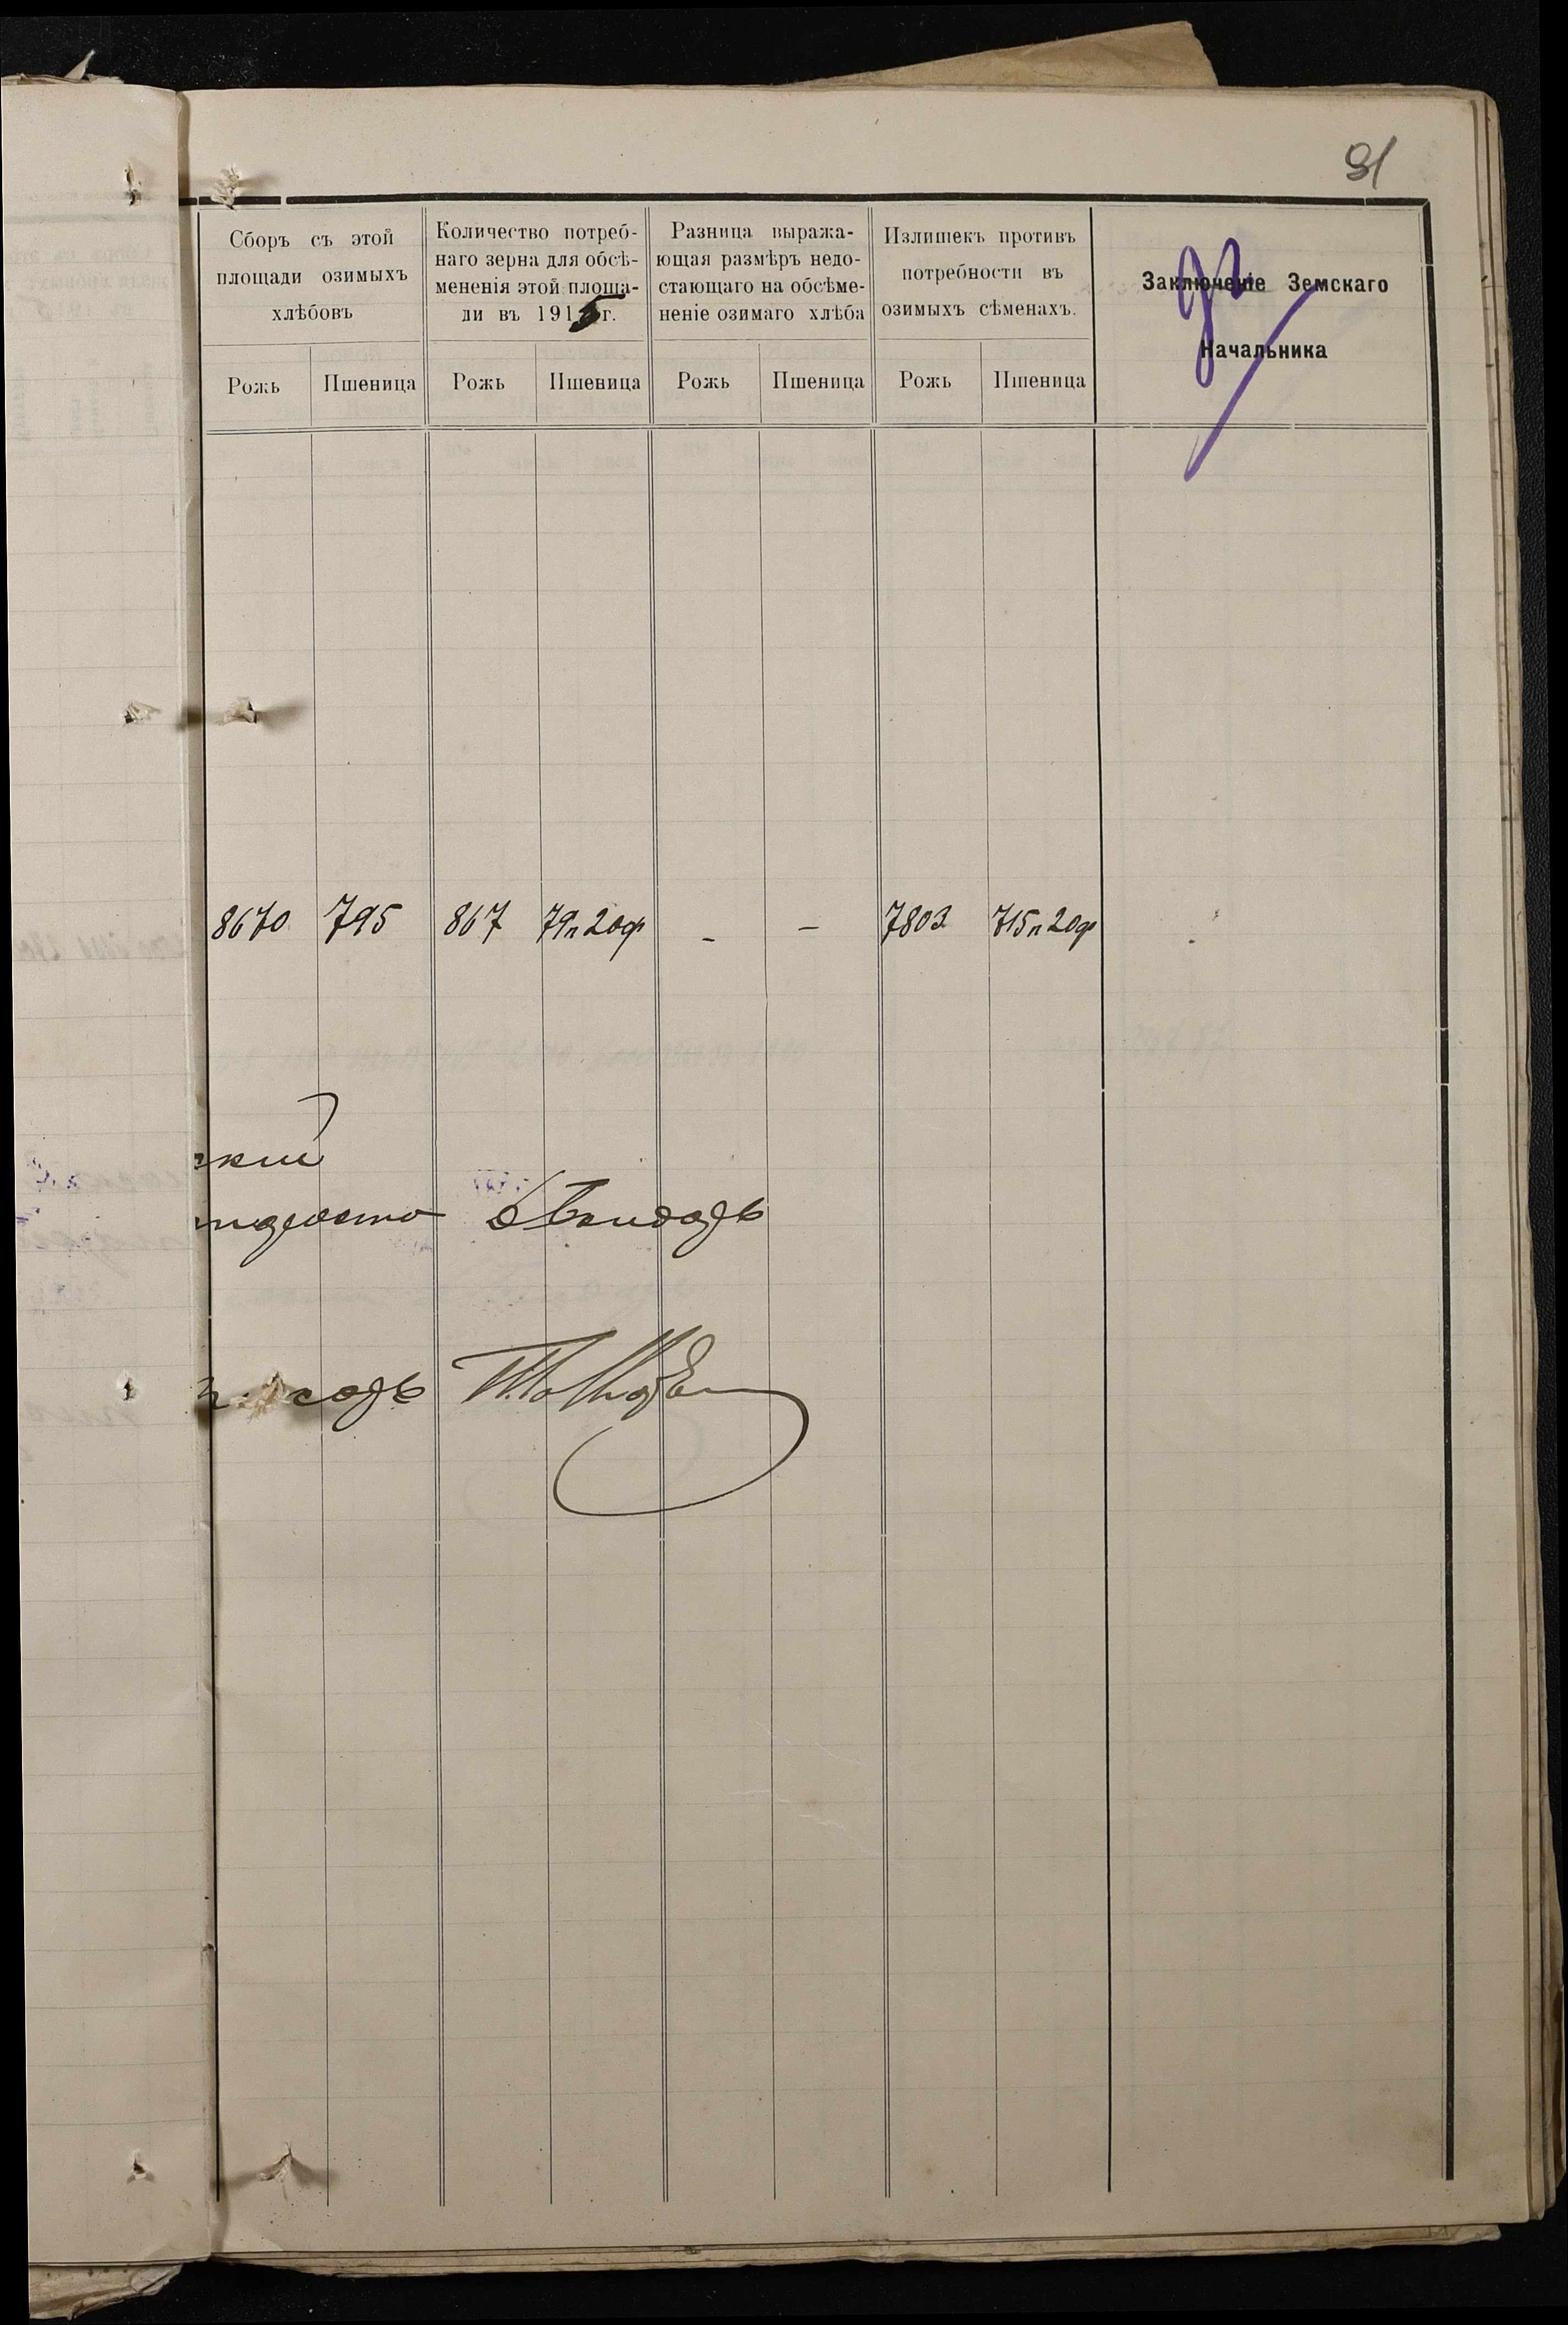 81
Сборъ съ этой
площади озимыхъ
хлѣбовъ
Количество потреб-
наго зерна для обсѣ-
мененія этой площа-
ди въ 1915 г.
Разница выража-
ющая размѣръ недо-
стающаго на обсѣме-
неніе озимаго хлѣба
Излишекъ противъ
потребности въ
озимыхъ сѣменахъ.
Заключеніе Земскаго
Начальника
Рожь Пшеница Рожь Пшеница Рожь Пшеница Рожь Пшеница
8670 795 867 79п20ф - - 7803 715п20ф
ский